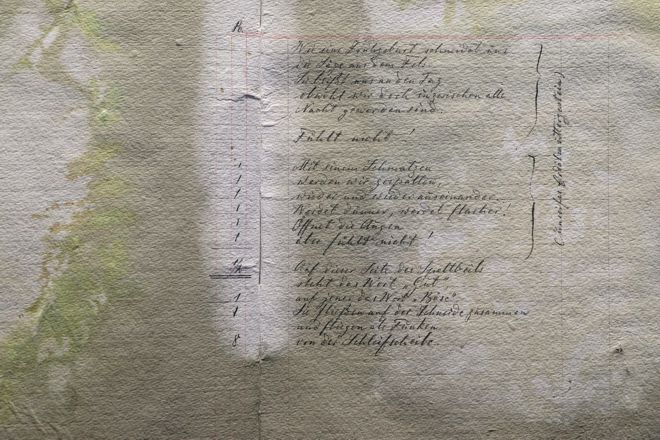 Wie eine Frühgeburt schneidet uns
die Säge aus dem Fels.
Sie ans an den Tag
obwohl wir doch inzwischen alle
Nacht geworden sind.
Fühlt nicht!
Mit einem Schmatzen
werden wir gespalten,
wieder und wieder auseinander.
Werdet dünner, werdet flacher!
Öffnet die Augen
aber fühlt nicht!
Auf dieser Seite des Spaltbeils
steht das Wort „Gut“
auf jener das Wort „Böse“.
Sie fließen auf der Schneide zusammen
und fliegen als Funken
von der Schleifscheibe.
1
1
1
1
1
1
1
1
8